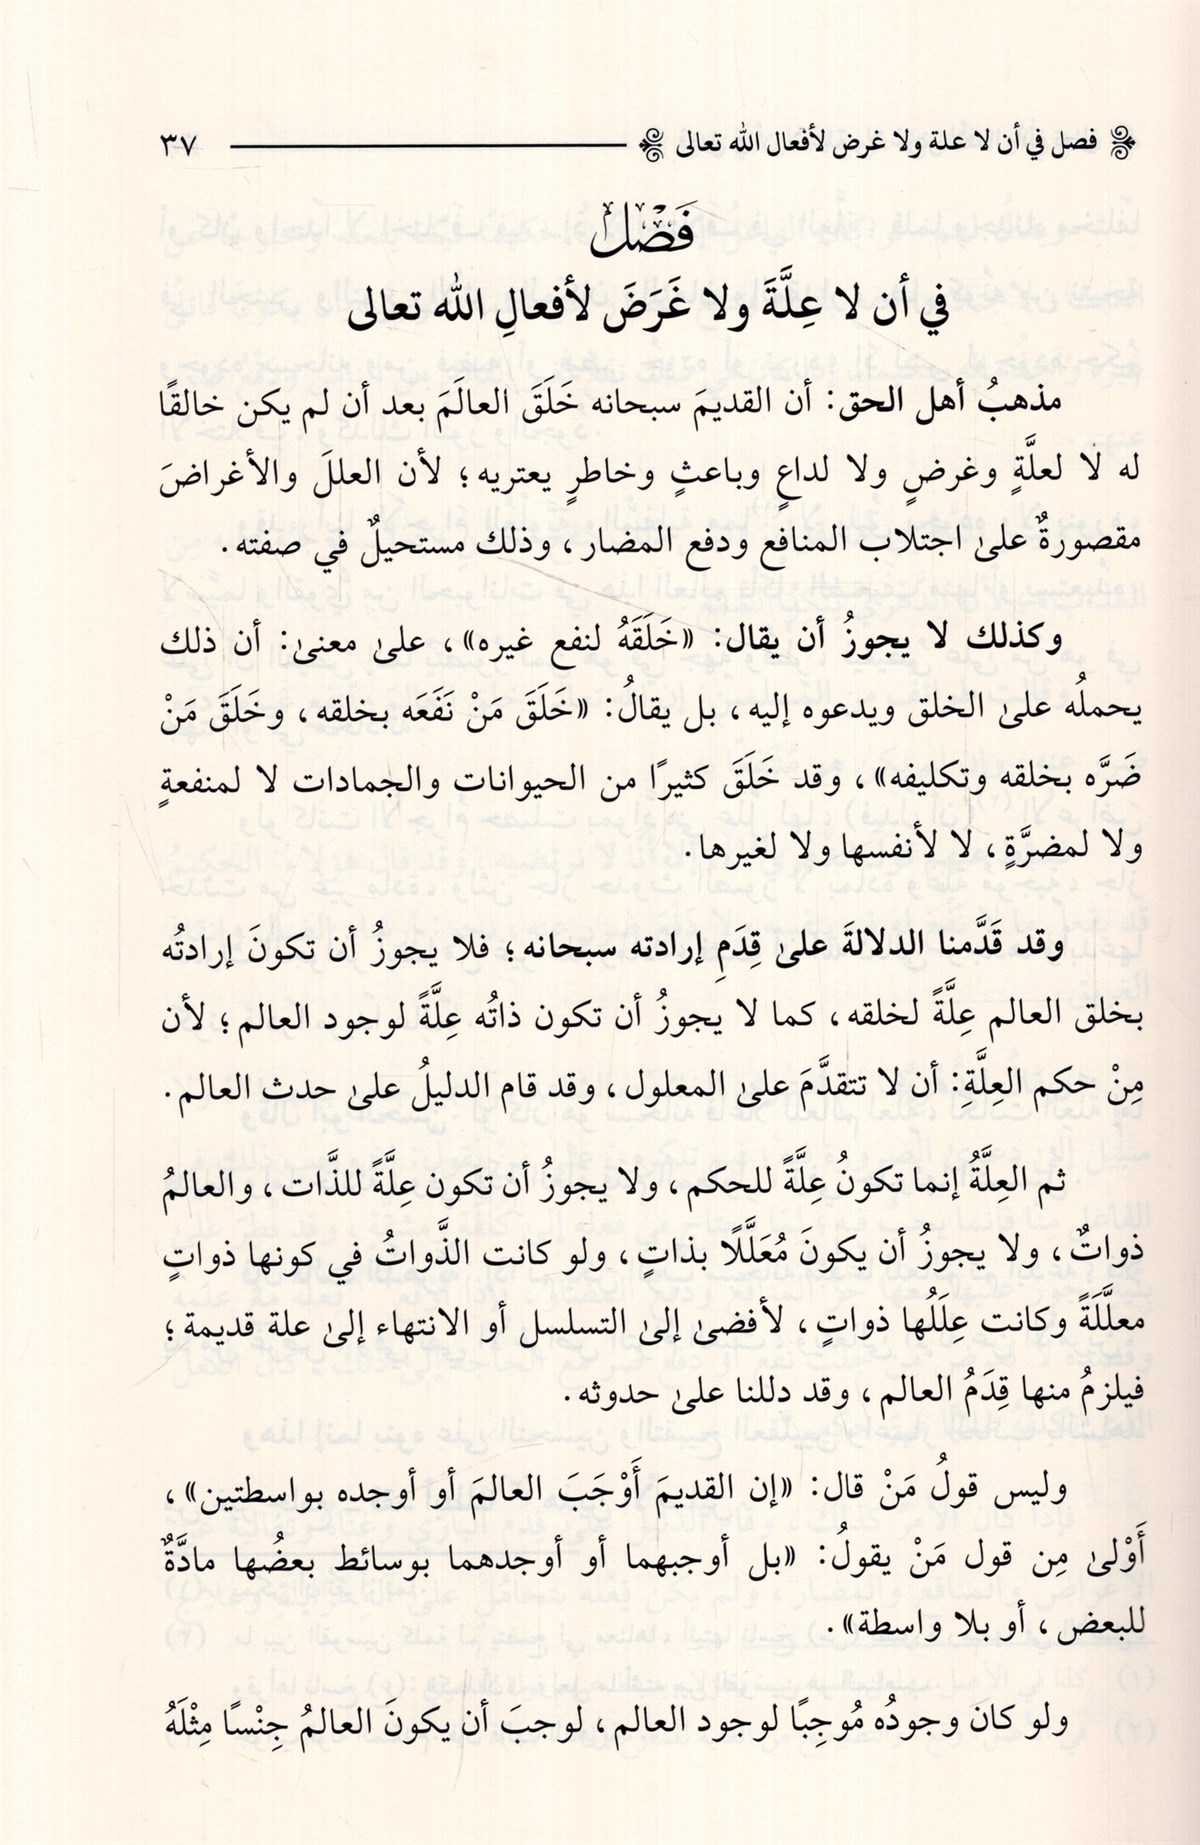 فصل في أن لا علة ولا غرض لأفعال الله تعالى ٣٧
فَصْلٌ
في أن لا عِلَّةَ ولا غَرَضَ لأفعالِ الله تعالى
مذهبُ أهل الحق: أن القديمَ سبحانه خَلَقَ العالَمَ بعد أن لم يكن خالقًا
له لا لعلَّةٍ وغرضٍ ولا لداعٍ وباعثٍ وخاطرٍ يعتريه؛ لأن العللَ والأغراضَ
مقصورةٌ علىٰ اجتلاب المنافع ودفع المضار، وذلك مستحيلٌ في صفته.
وكذلك لا يجوزُ أن يقال: «خَلَقَهُ لنفع غيره»، علىٰ معنىٰ: أن ذلك
يحملُه علىٰ الخلق ويدعوه إليه، بل يقالُ: «خَلَقَ مَنْ نَفَعَه بخلقه، وخَلَقَ مَنْ
ضَرَّه بخلقه وتكليفه»، وقد خَلَقَ كثيرًا من الحيوانات والجمادات لا لمنفعةٍ
ولا لمضرَّةٍ، لا لأنفسها ولا لغيرها.
وقد قَدَّمنا الدلالةَ علىٰ قِدَمِ إرادته سبحانه؛ فلا يجوزُ أن تكونَ إرادتُه
بخلق العالم عِلَّةً لخلقه، كما لا يجوزُ أن تكون ذاتُه عِلَّةً لوجود العالم؛ لأن
مِنْ حكم العِلَّةِ: أن لا تتقدَّمَ علىٰ المعلول، وقد قام الدليلُ علىٰ حدث العالم.
ثم العِلَّةُ إنما تكونُ عِلَّةً للحكم، ولا يجوزُ أن تكون عِلَّةً للذَّات، والعالمُ
ذواتٌ، ولا يجوزُ أن يكونَ مُعَلَّلًا بذاتٍ، ولو كانت الذَّواتُ في كونها ذواتٍ
معلَّلَةً وكانت عِلَلُها ذواتٍ، لأفضىٰ إلىٰ التسلسل أو الانتهاء إلىٰ علة قديمة؛
فيلزمُ منها قِدَمُ العالم، وقد دللنا علىٰ حدوثه.
وليس قولُ مَنْ قال: «إن القديمَ أَوْجَبَ العالمَ أو أوجده بواسطتين»،
أَوْلىٰ مِن قول مَنْ يقولُ: «بل أوجبهما أو أوجدهما بوسائط بعضُها مادَّةٌ
للبعض، أو بلا واسطة».
ولو كان وجودُه مُوجِبًا لوجود العالم، لوجبَ أن يكونَ العالمُ جِنْسًا مِثْلَهُ